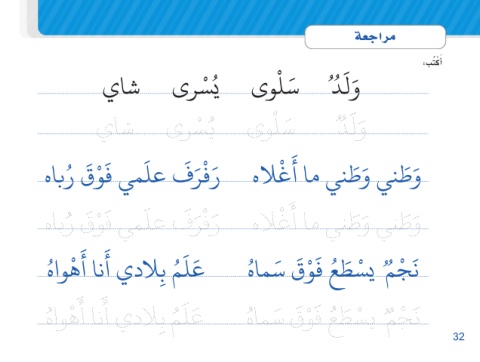 مراجعة
أَكتُب:
وَلَدٌ سَلْوى يُسْرى شاي
وَلَدٌ سَلْوى يُسْرى شاي
وَطَني وَطَني ما أَغْلاه رَفْرَفَ علَمي فَوْقَ رُباه
وَطَني وَطَني ما أَغْلاه رَفْرَفَ علَمي فَوْقَ رُباه
نَجْمٌ يسْطَعُ فَوْقَ سَماهُ عَلَمُ بِلادي أَنا أَهْواهُ
نَجْمٌ يسْطَعُ فَوْقَ سَماهُ عَلَمُ بِلادي أَنا أَهْواهُ
32